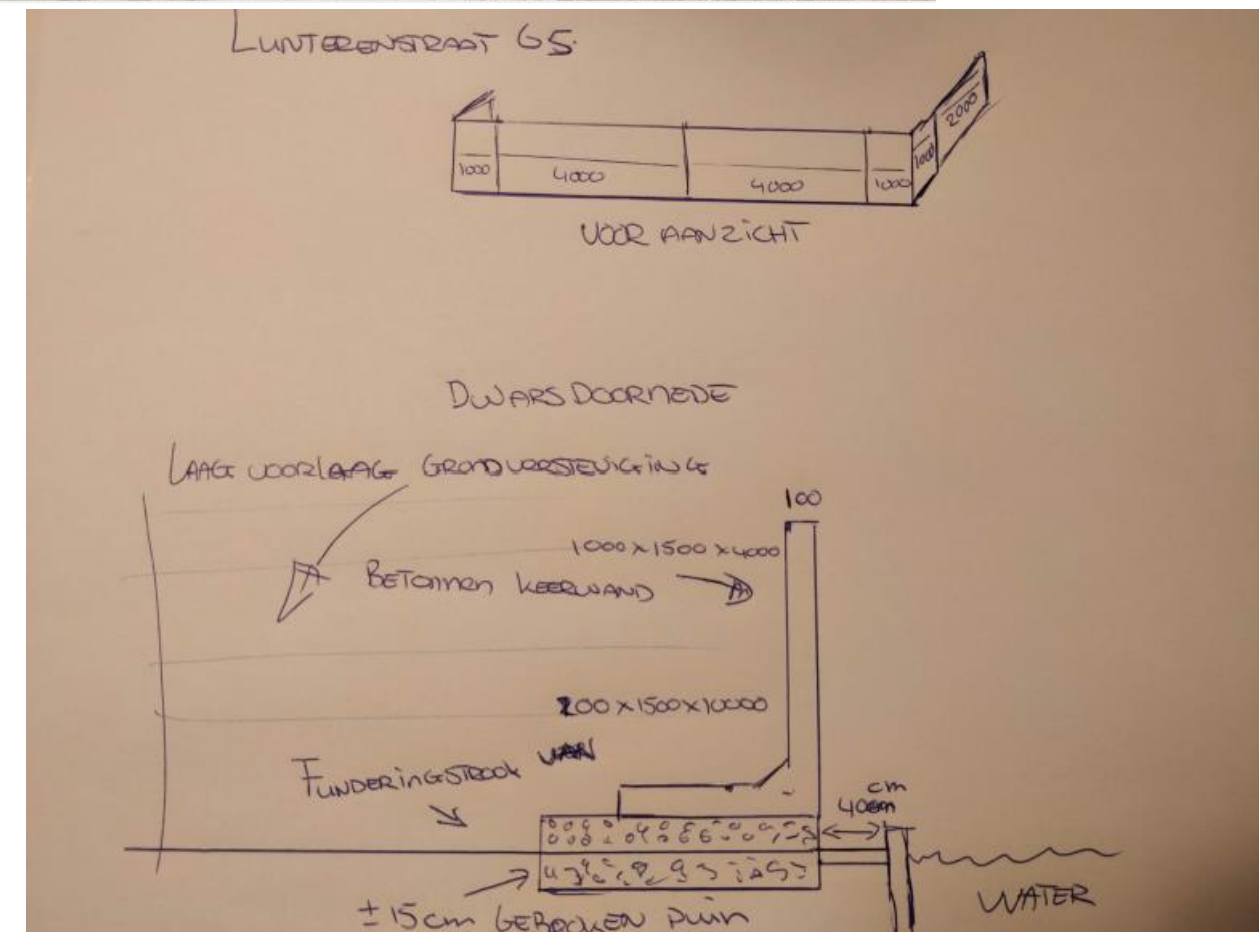 LUNTERENSTRAAT 65.
2000
1000
1000
4000
4000
1000
VOOR AANZICHT
DWARS DOORNEDE
LAAG VOOR LAAG GRONDVERSTEVIGING
100
1000 x 1500 x 4000
BETONNEN KEERWAND
200 x 1500 x 10000
FUNDERINGSTROOK VAN
cm
40cm
± 15 cm GEBROKEN PUIN
WATER